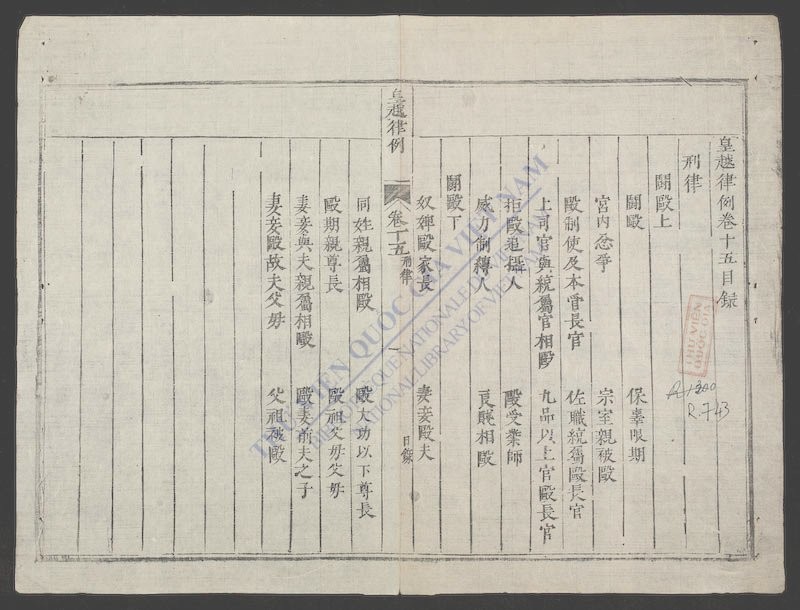 皇越律例卷十五目錄
刑律
鬭毆上
鬭毆 保辜限期
宮内忿爭 宗室親被毆
毆制使及本管長官 佐職統屬毆長官
上司官與統屬官相毆 九品以上官毆長官
拒毆追攝人 毆受業師
威力制縛人 良賤相毆
鬭毆下
奴婢毆家長 妻妾毆夫
皇越律例 卷十五 刑律 一 目錄
同姓親屬相毆 毆大功以下尊長
毆期親尊長 毆祖父母父母
妻妾與夫親屬相毆 毆妻前夫之子
妻妾毆故夫父母 父祖被毆
THƯ VIỆN
QUỐC GIA
R.743
THƯ VIỆN QUỐC GIA VIỆT NAM
BIBLIOTHEQUE NATIONALE DU VIETNAM
NATIONAL LIBRARY OF VIETNAM